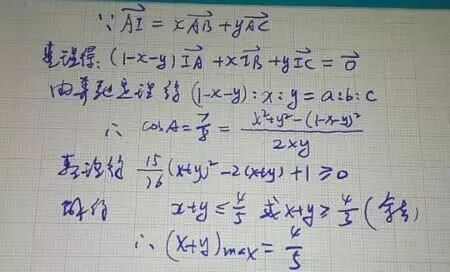 ∵ AI⃗ = xAB⃗ + yAC⃗
整理得: (1-x-y)IA⃗ + xIB⃗ + yIC⃗ = 0⃗
由奔驰定理得 (1-x-y):x:y = a:b:c
∴ cosA = 7/8 = (x²+y²-(1-x-y)²)/(2xy)
整理得 15/16(x+y)²-2(x+y)+1≥0
解得 x+y≤4/5 或 x+y≥4/3 (舍去)
∴ (x+y)max = 4/5